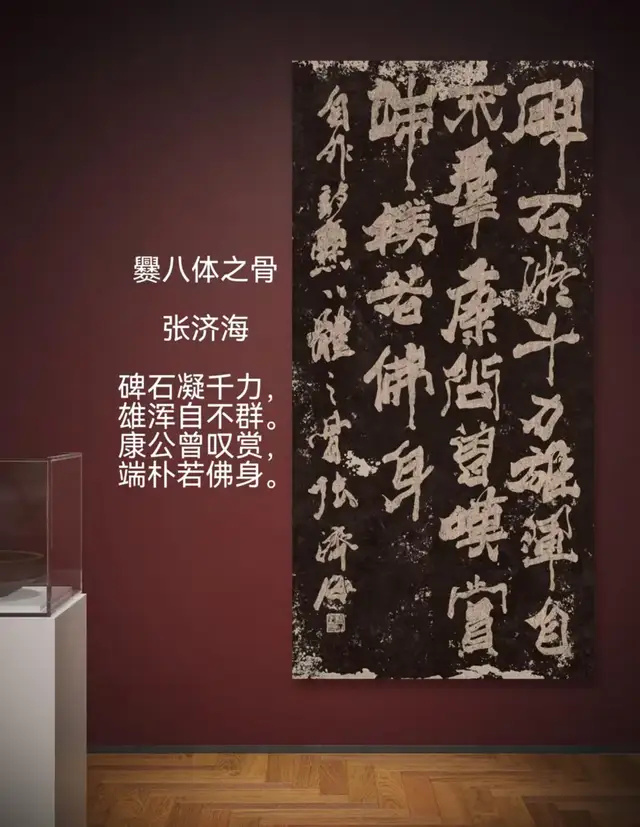 爨八体之骨
张济海
碑石凝千力，
雄浑自不群。
康公曾叹赏，
端朴若佛身。
碑石凝千力雄渾自
不群康公曾嘆賞
端樸若佛身
自作詩爨八體之骨張濟海